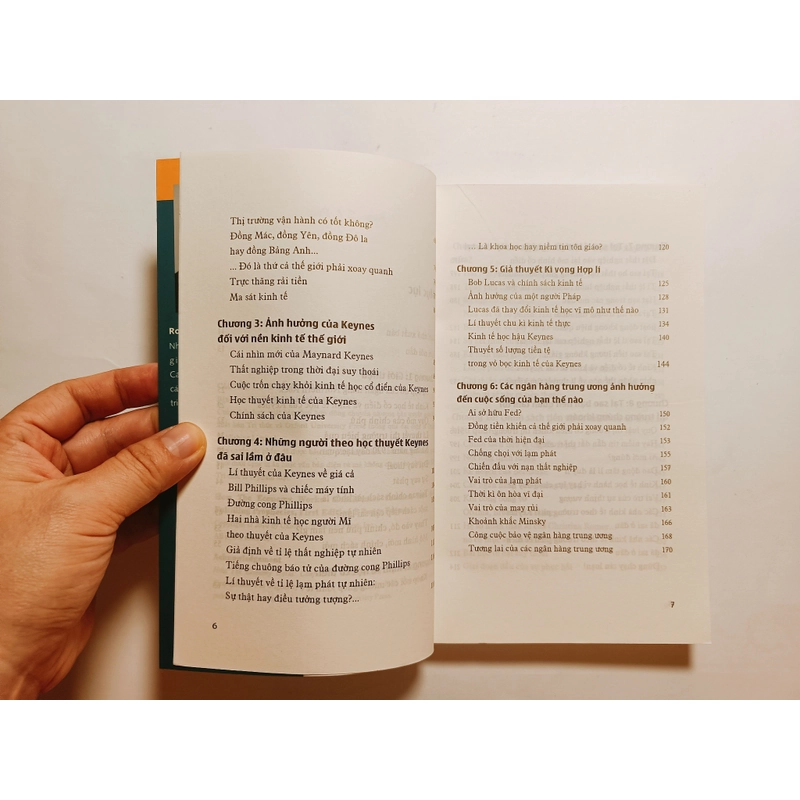 Thị trường vận hành có tốt không?
Đồng Mác, đồng Yên, đồng Đô la
hay đồng Bảng Anh...
... Đó là thứ cả thế giới phải xoay quanh
Trực thăng rải tiền
Ma sát kinh tế
Chương 3: Ảnh hưởng của Keynes
đối với nền kinh tế thế giới
Cái nhìn mới của Maynard Keynes
Thất nghiệp trong thời đại suy thoái
Cuộc trốn chạy khỏi kinh tế học cổ điển của Keynes
Học thuyết kinh tế của Keynes
Chính sách của Keynes
Chương 4: Những người theo học thuyết Keynes
đã sai lầm ở đâu
Lí thuyết của Keynes về giá cả
Bill Phillips và chiếc máy tính
Đường cong Phillips
Hai nhà kinh tế học người Mĩ
theo thuyết của Keynes
Giả định về tỉ lệ thất nghiệp tự nhiên
Tiếng chuông báo tử của đường cong Phillips
Lí thuyết về tỉ lệ lạm phát tự nhiên:
Sự thật hay điều tưởng tượng?...
6
... Là khoa học hay niềm tin tôn giáo? 120
Chương 5: Giả thuyết Kì vọng Hợp lí
Bob Lucas và chính sách kinh tế 125
Ảnh hưởng của một người Pháp 128
Lucas đã thay đổi kinh tế học vĩ mô như thế nào 131
Lí thuyết chu kì kinh tế thực 134
Kinh tế học hậu Keynes 140
Thuyết số lượng tiền tệ
trong vỏ bọc kinh tế của Keynes 144
Chương 6: Các ngân hàng trung ương ảnh hưởng
đến cuộc sống của bạn thế nào
Ai sở hữu Fed? 150
Đồng tiền khiến cả thế giới phải xoay quanh 152
Fed của thời hiện đại 154
Chống chọi với lạm phát 155
Chiến đấu với nạn thất nghiệp 159
Vai trò của lạm phát 160
Thời kì ôn hòa vĩ đại 161
Vai trò của may rủi 163
Khoảnh khắc Minsky 166
Công cuộc bảo vệ ngân hàng trung ương 168
Tương lai của các ngân hàng trung ương 170
7